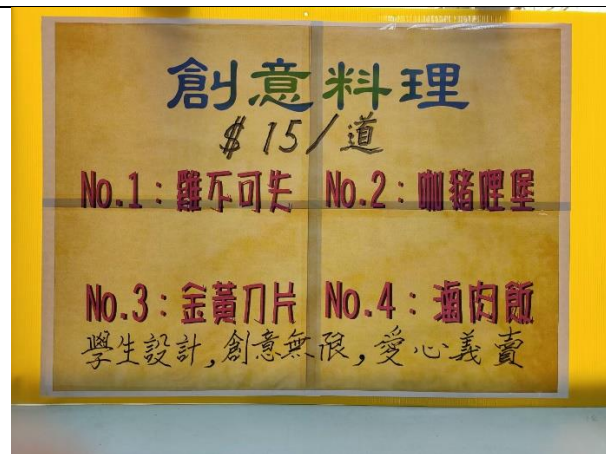 創意料理
$15/道
No.1：雞不可失 No.2：咖豬哩堡
No.3：金黃刀片 No.4：滷肉飯
學生設計,創意無限,愛心義賣